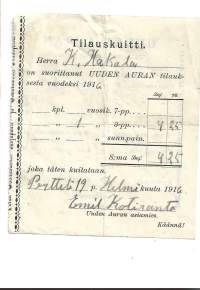 Tilauskuitti.
Herra K. Hakala
on suorittanut UUDEN AURAN tilauk-
sesta vuodeksi 1916.
Smf. pü.
kpl. vuosik. 7-pp.
„ 1 „ 3-pp. 4 25
„ „ sunn.pain.
S:ma Smf. 4 25
joka täten kuitataan.
19 p. Helmi kuuta 1916
Emil Kotiranta
Uuden Auran asiamies.
Käännä!